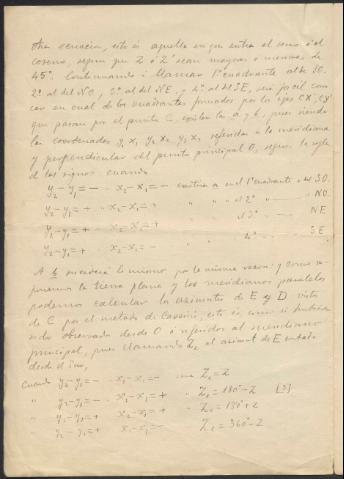 otra ecuacion, esto és aquella en que entra el seno ó el
coseno, segun que Z ó Z' sean mayores ó menores de
45°. Continuando á llamar 1er cuadrante al del SO.
2º al del NO, 3º al del NE, y 4º al del SE, será facil cono
cer en cual de los cuadrantes formados por los ejes CX, CX'
que pasan por el punto C, existen los a y b, pues siendo
las coordenadas y, x, y₂ x₂ y, x, referidas á la meridiana
y perpendicular del punto principal O, segun la regla
de los signos cuando
y₂ - y₁ = - x₂ - x₁ = - existiria a en el 1er cuadrante ó del SO.
y₂ - y₁ = + x₂ - x₁ = - " " " el 2º " NO
y₂ - y₁ = + x₂ - x₁ = + " " 3º " NE
y₂ - y₁ = + x₂ - x₁ = - " " 4º " SE
A b sucederá lo mismo por la misma razon: y como su-
ponemos la tierra plana y los meridianos paralelos
podemos calcular los azimuts de E y D vistos
de C por el metodo de Cassini, esto és, como si hubiera
sido observado desde O ó referidos al meridiano
principal, pues llamando Z₂ el azimut de E contado
desde el
Cuando y₂ - y₁ = - x₂ - x₁ = - Z₂ = Z
" y₂ - y₁ = - x₂ - x₁ = + Z₂ = 180° - Z [3]
" y₂ - y₁ = + x₂ - x₁ = + Z₂ = 180° + Z
" y₂ - y₁ = + x₂ - x₁ = - Z₂ = 360° - Z